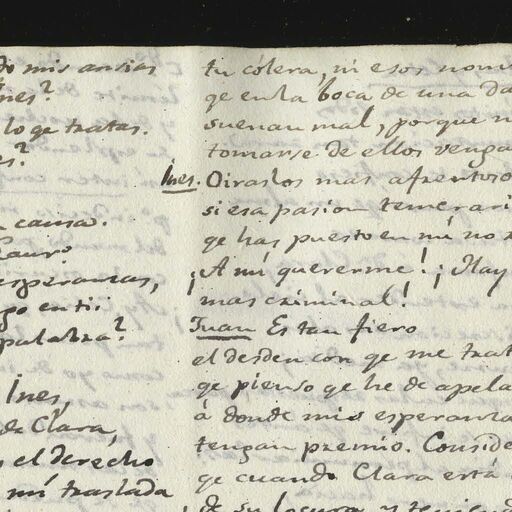 do mis ansias
Ines?
lo qe tratas.
es?
causa.
Laur?
esperanzas,
go en ti
palabra?
Ines,
de Clara,
el derecho
mi traslada
tu cólera, ni esos nom
qe en la boca de una da
suenan mal, porque n
tomarse de ellos venga
Ines. Oiraslos mas afrentoso
si esa pasion temerari
qe has puesto en mi no r
¡A mi quererme! ¡Hay
mas criminal!
Juan Es tan fiero
el desden con qe me trat
qe pienso qe he de apela
á donde mis esperanza
tengan premio. Conside
qe cuando Clara está
de su locura, y teniend